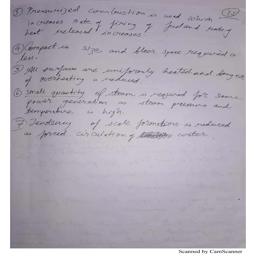 ③ Pressurized combustion is used which
increases rate of firing of fuel and
heat released increases.
④ Compact in size and floor space required is
less.
⑤ All surfaces are uniformly heated and danger
of overheating is reduced.
⑥ Small quantity of steam is required for same
power generation as steam pressure and
temperature is high.
⑦ Tendency of scale formation is reduced
as forced circulation of water.
Scanned by CamScanner